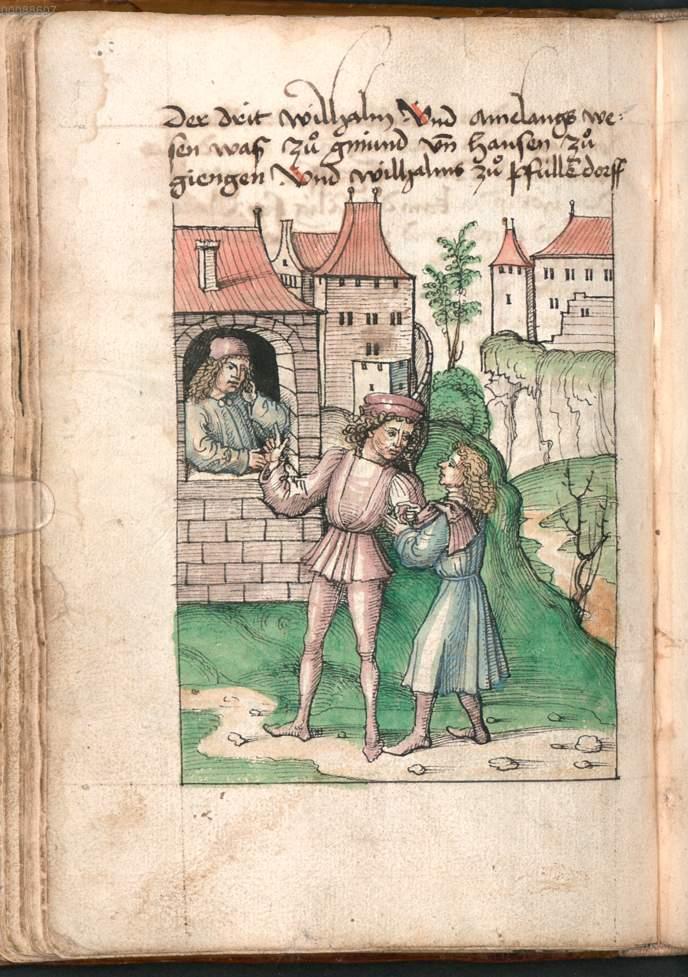 00088607
Der drit Wilhalm Vnd Amelangs we:
sen was zů gmünd vn̄ hansen zů
giengen Vnd wilhalms zů pfullEdorff